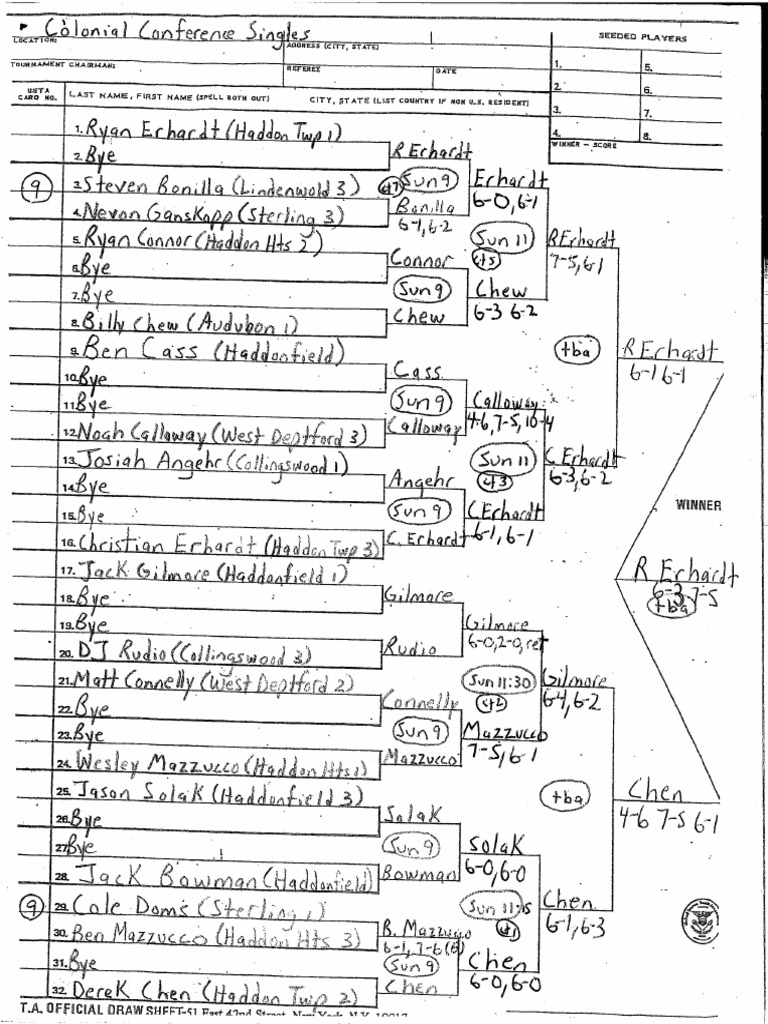 Colonial Conference Singles
LOCATION:
ADDRESS (CITY, STATE)
SEEDED PLAYERS
TOURNAMENT CHAIRMAN:
REFEREE
DATE
1.
5.
2.
6.
3.
7.
4.
8.
USTA CARD NO.
LAST NAME, FIRST NAME (SPELL BOTH OUT)
CITY, STATE (LIST COUNTRY IF NON U.S. RESIDENT)
WINNER - SCORE
1. Ryan Erhardt (Haddon Twp 1)
2. Bye
R Erhardt
9
3. Steven Bonilla (Lindenwold 3)
4. Nevon Ganskopp (Sterling 3)
ct7
Sun 9
Bonilla
6-1, 6-2
Erhardt
6-0, 6-1
5. Ryan Connor (Haddon Hts 2)
6. Bye
Connor
Sun 9
7. Bye
8. Billy Chew (Audubon 1)
Chew
Chew
6-3 6-2
Sun 11
ct5
R Erhardt
7-5, 6-1
9. Ben Cass (Haddonfield)
10. Bye
Cass
Sun 9
11. Bye
12. Noah Calloway (West Deptford 3)
Calloway
Calloway
4-6, 7-5, 10-4
13. Josiah Angehr (Collingswood 1)
14. Bye
Angehr
Sun 9
15. Bye
16. Christian Erhardt (Haddon Twp 3)
C. Erhardt
C Erhardt
6-1, 6-1
Sun 11
ct3
C Erhardt
6-3, 6-2
tba
R Erhardt
6-1 6-1
WINNER
R Erhardt
6-3 7-5
tba
17. Jack Gilmore (Haddonfield 1)
18. Bye
Gilmore
19. Bye
20. DJ Rudio (Collingswood 3)
Rudio
Gilmore
6-0, 2-0, ret
21. Matt Connelly (West Deptford 2)
22. Bye
Connelly
Sun 9
23. Bye
24. Wesley Mazzucco (Haddon Hts 1)
Mazzucco
Mazzucco
7-5, 6-1
Sun 11:30
ct2
Gilmore
6-4, 6-2
25. Jason Solak (Haddonfield 3)
26. Bye
Solak
Sun 9
27. Bye
28. Jack Bowman (Haddonfield)
Bowman
Solak
6-0, 6-0
9
29. Cole Doms (Sterling 1)
30. Ben Mazzucco (Haddon Hts 3)
B. Mazzucco
6-1, 7-6 (6)
Sun 9
31. Bye
32. Derek Chen (Haddon Twp 2)
Chen
Chen
6-0, 6-0
Sun 11:15
ct1
Chen
6-1, 6-3
tba
Chen
4-6 7-5 6-1
T.A. OFFICIAL DRAW SHEET-51 East 42nd Street, New York, N.Y. 10017